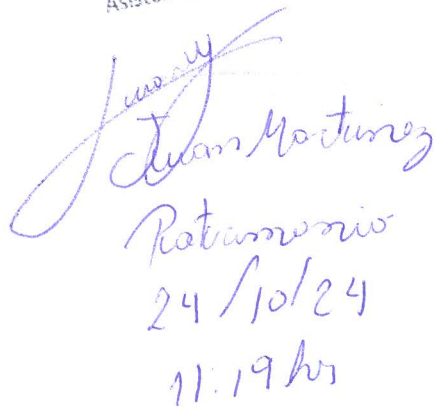 Juan Martinez
Patrimonio
24/10/24
11:19 hrs